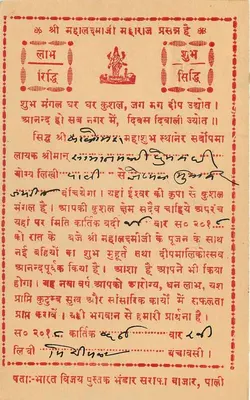 ॐ श्री महालक्ष्मीजी महाराज प्रसन्न है ॐ
लाभ शुभ
रिद्धि सिद्धि
शुभ मंगल घर घर कुशल, जग मग दीप उद्योत।
आनन्द हो सब नगर में, दिवस दिवाली ज्योत॥
सिद्ध श्री महाशुभ स्थानेर सर्वोपमा
लायक श्रीमान्
योग्य लिखी पाली से
बांचियेगा। यहां ईश्वर की कृपा से कुशल
मंगल है। आपकी कुशल क्षेम सदैव चाहिये अपरंच
यहां पर मिति कार्तिक बदी वार स० २०१
को रात के बजे श्री महालक्ष्मीजी के पूजन के साथ
नई बहियों का शुभ मुहूर्त तथा दीपमालिकोत्सव
आनन्दपूर्वक किया है। आशा है आपने भी किया
होगा। यह नया वर्ष आपको आरोग्य, धन लाभ, यश
प्राप्ति कुटुम्ब सुख और सांसारिक कार्यों में सफलता
प्राप्त करावें। यही भगवान से हमारी प्रार्थना है।
स० २०१८ कार्तिक वार
लि वी बंचावसी।
पता:-भारत विजय पुस्तक भंडार सराफा बाजार, पाली